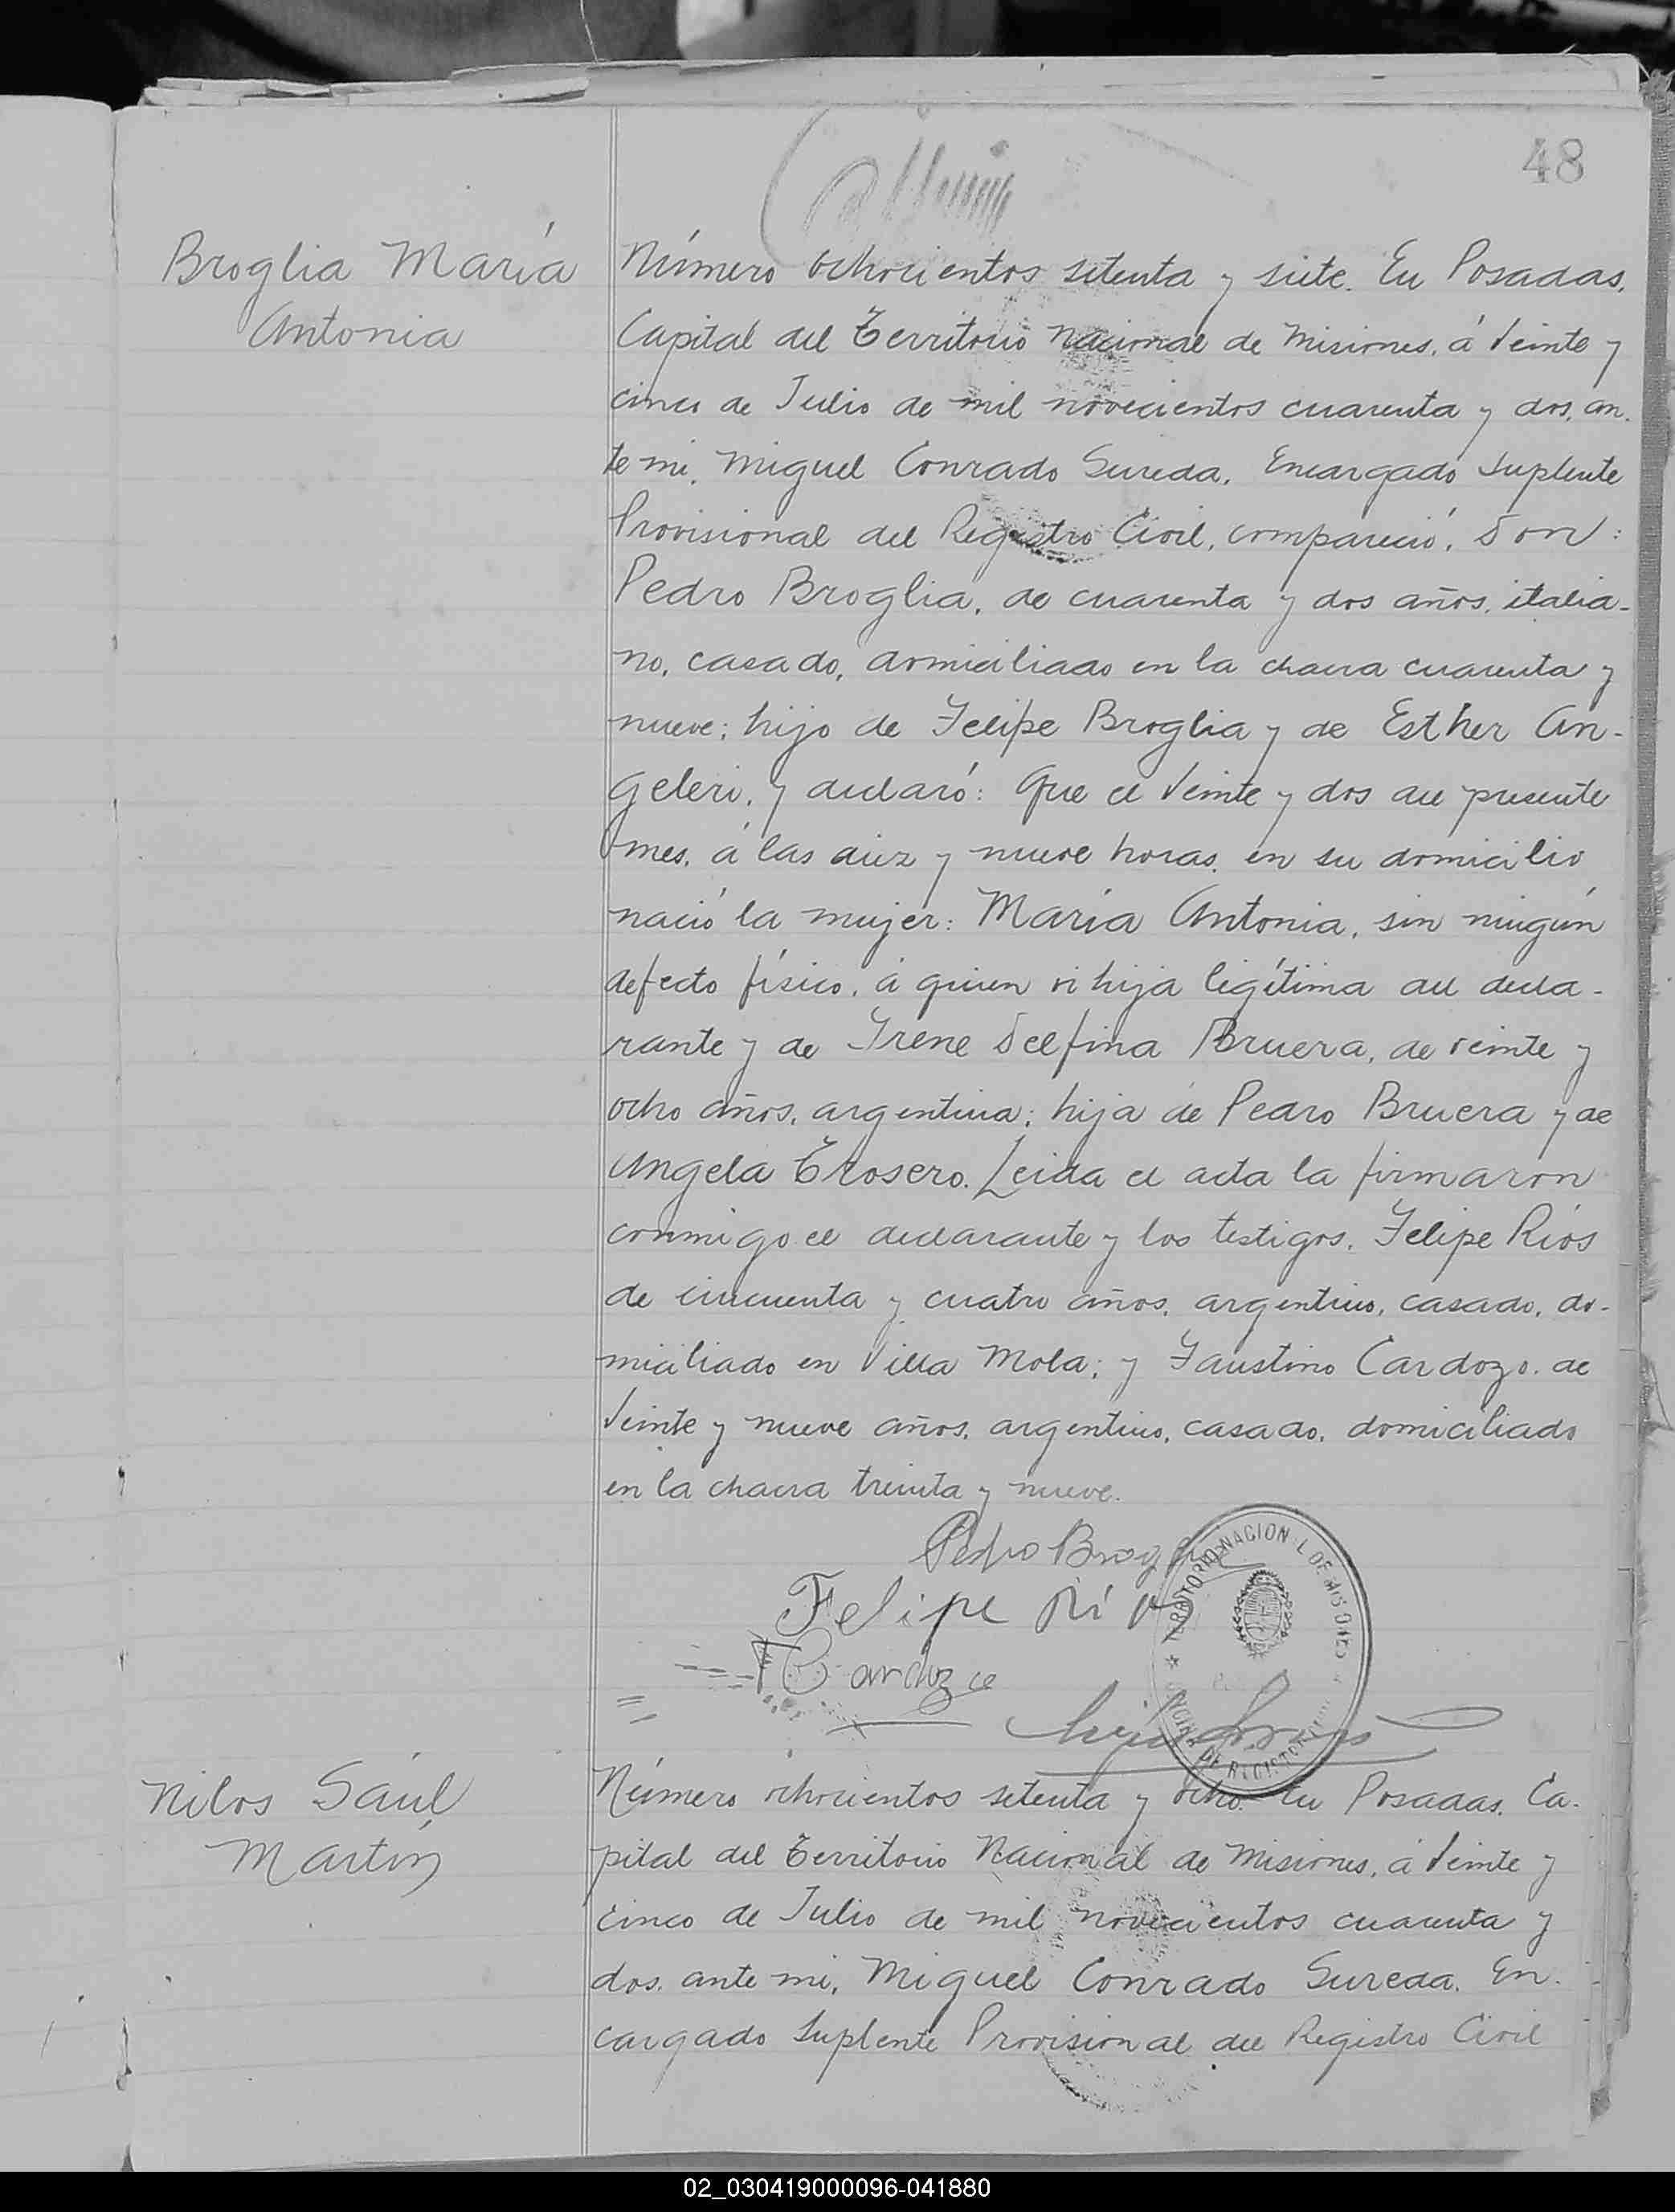 48
Broglia María
Antonia
Número ochocientos setenta y siete. En Posadas,
Capital del Territorio Nacional de Misiones, á veinte y
cinco de Julio de mil novecientos cuarenta y dos, an-
te mi, Miguel Conrado Sureda, Encargado Suplente
Provisional del Registro Civil, compareció, Don:
Pedro Broglia, de cuarenta y dos años, italia-
no, casado, domiciliado en la chacra cuarenta y
nueve; hijo de Felipe Broglia y de Esther An-
geleri, y declaró: Que el veinte y dos del presente
mes, á las diez y nueve horas, en su domicilio
nació la mujer: María Antonia, sin ningún
defecto físico, á quien ví hija legítima del decla-
rante y de Irene Delfina Bruera, de veinte y
ocho años, argentina; hija de Pedro Bruera y de
Angela Trosero. Leida el acta la firmaron
conmigo el declarante y los testigos, Felipe Ríos
de cincuenta y cuatro años, argentino, casado, do-
miciliado en Villa Mola; y Faustino Cardozo, de
veinte y nueve años, argentino, casado, domiciliado
en la chacra treinta y nueve.
Pedro Broglia
Felipe Ríos
F Cardozo
TERRITORIO NACIONAL DE MISIONES
OFICINA DE REGISTRO CIVIL
Nilos Saúl
Martín
Número ochocientos setenta y ocho. En Posadas, Ca-
pital del Territorio Nacional de Misiones, á veinte y
cinco de Julio de mil novecientos cuarenta y
dos, ante mi, Miguel Conrado Sureda, En-
cargado Suplente Provisional del Registro Civil
02_030419000096-041880